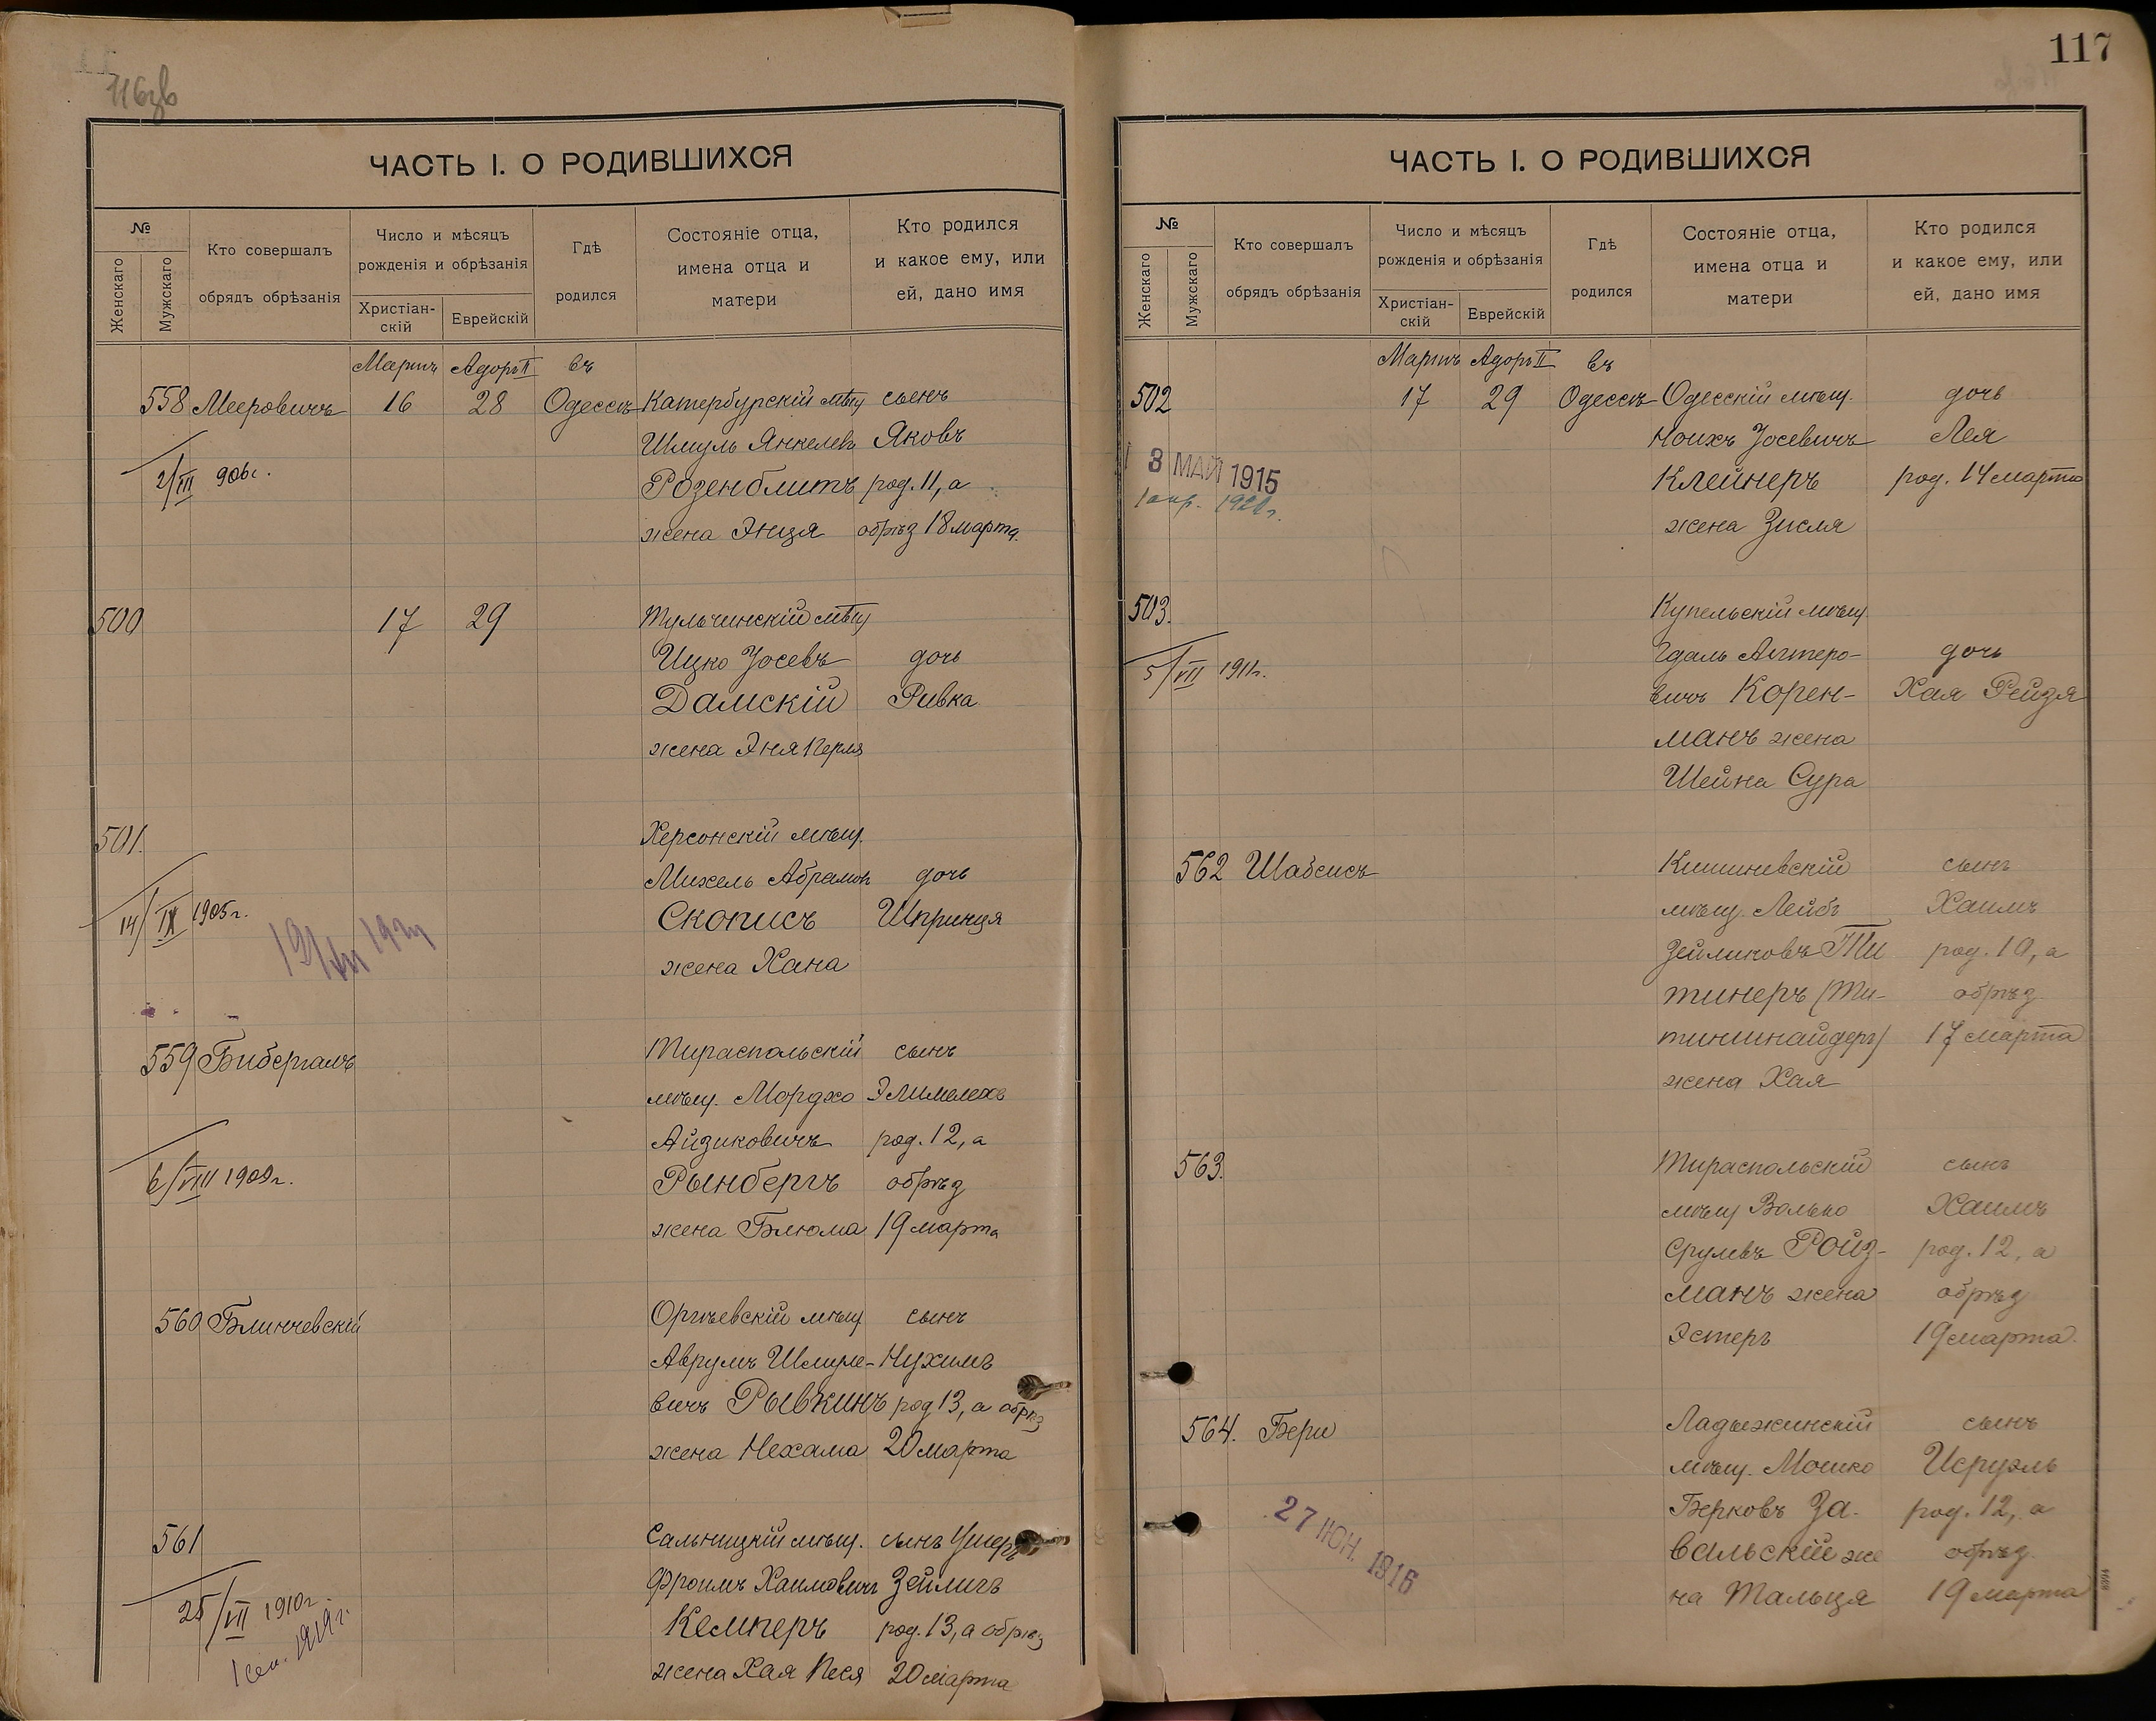 116зв
ЧАСТЬ I. О РОДИВШИХСЯ
№
Женскаго
Мужскаго
Кто совершалъ
обрядъ обрѣзанія
Число и мѣсяцъ
рожденія и обрѣзанія
Христіан-
скій
Еврейскій
Гдѣ
родился
Состояніе отца,
имена отца и
матери
Кто родился
и какое ему, или
ей, дано имя
Мартъ Адоръ II въ
558 Мееровичъ 16 28 Одессѣ Катербурскій мѣщ сынъ
Шмуль Янкелевъ Яковъ
2/III 906г. Розенблитъ род. 11, а
жена Энця обрѣз 18 марта.
500 17 29 Тульчинскій мѣщ
Ицко Іосевъ дочь
Дамскій Ривка
жена Эня Перля
501. Херсонскій мѣщ.
Михель Абрамов дочь
14/IX 1905г. Скописъ Шпринця
жена Хана
559 Бибергалъ Тираспольскій сынъ
мѣщ. Мордхо Элимелехъ
Айзиковичъ род. 12, а
6/VIII 1909г. Рынбергъ обрѣз
жена Блюма 19 марта
560 Блинчевскій Оргѣевскій мѣщ сынъ
Аврумъ Шмуле- Нухимъ
вичъ Рывкинъ род 13, а обрѣз
жена Нехама 20 марта
561 Сальницкій мѣщ. сынъ Ушеръ
Фроимъ Хаимович Зейлигъ
25/VII 1910г. Кемперъ род. 13, а обрѣз
1 сен. 1919г. жена Хая Песя 20 марта
117
ЧАСТЬ I. О РОДИВШИХСЯ
№
Женскаго
Мужскаго
Кто совершалъ
обрядъ обрѣзанія
Число и мѣсяцъ
рожденія и обрѣзанія
Христіан-
скій
Еврейскій
Гдѣ
родился
Состояніе отца,
имена отца и
матери
Кто родился
и какое ему, или
ей, дано имя
Мартъ Адоръ II въ
502 17 29 Одессѣ Одесскій мѣщ. дочь
Ноихъ Іосевичъ Лея
3 МАЙ 1915 Клейнеръ род. 14 марта
1 апр. жена Зисля
503. Купельскій мѣщ.
5/VII 1911г. Гдаль Алтеро- дочь
вичъ Корен- Хая Рейзя
манъ жена
Шейна Сура
562 Шабсисъ Кишиневскій сынъ
мѣщ. Лейбъ Хаимъ
Зейликовъ Ти род. 10, а
тинеръ (Ти- обрѣз
тиншнайдеръ) 17 марта
жена Хая
563. Тираспольскій сынъ
мѣщ Волько Хаимъ
Срулевъ Ройз- род. 12, а
манъ жена обрѣз
Эстеръ 19 марта.
564. Бери Ладыжинскій сынъ
мѣщ. Мошко Исруэль
Берковъ За- род. 12, а
27 ІЮН. 1916 вальскій же обрѣз.
на Мальця 19 марта